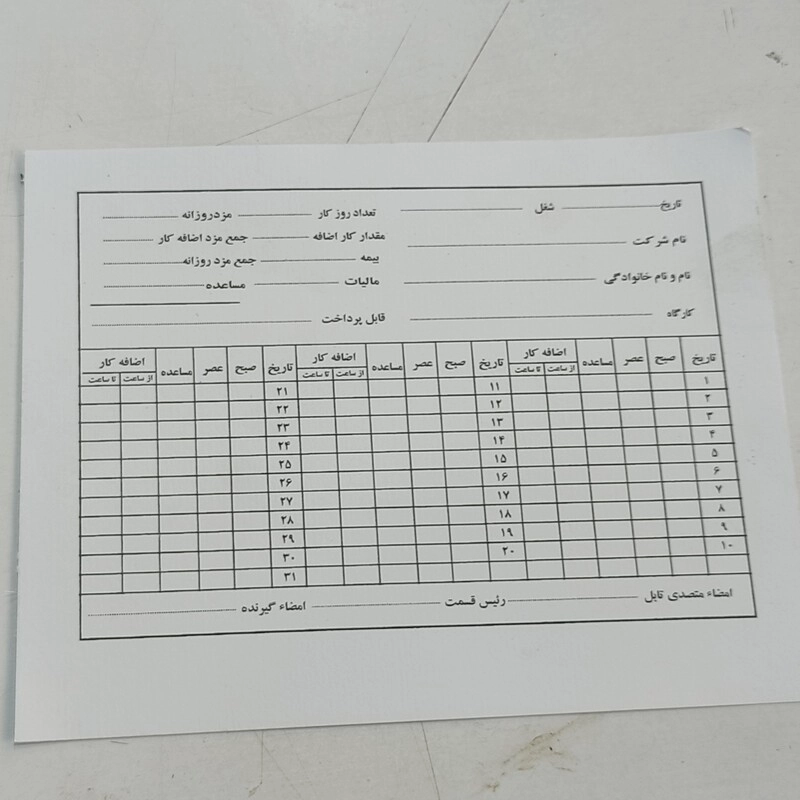 تاریخ شغل تعداد روز کار مزدروزانه
نام شرکت مقدار کار اضافه جمع مزد اضافه کار
بیمه جمع مزد روزانه
نام و نام خانوادگی مالیات مساعده
کارگاه قابل پرداخت
تاریخ صبح عصر مساعده اضافه کار تاریخ صبح عصر مساعده اضافه کار تاریخ صبح عصر مساعده اضافه کار
از ساعت تا ساعت از ساعت تا ساعت از ساعت تا ساعت
۱ ۱۱ ۲۱
۲ ۱۲ ۲۲
۳ ۱۳ ۲۳
۴ ۱۴ ۲۴
۵ ۱۵ ۲۵
۶ ۱۶ ۲۶
۷ ۱۷ ۲۷
۸ ۱۸ ۲۸
۹ ۱۹ ۲۹
۱۰ ۲۰ ۳۰
۳۱
امضاء متصدی تابل رئیس قسمت امضاء گیرنده